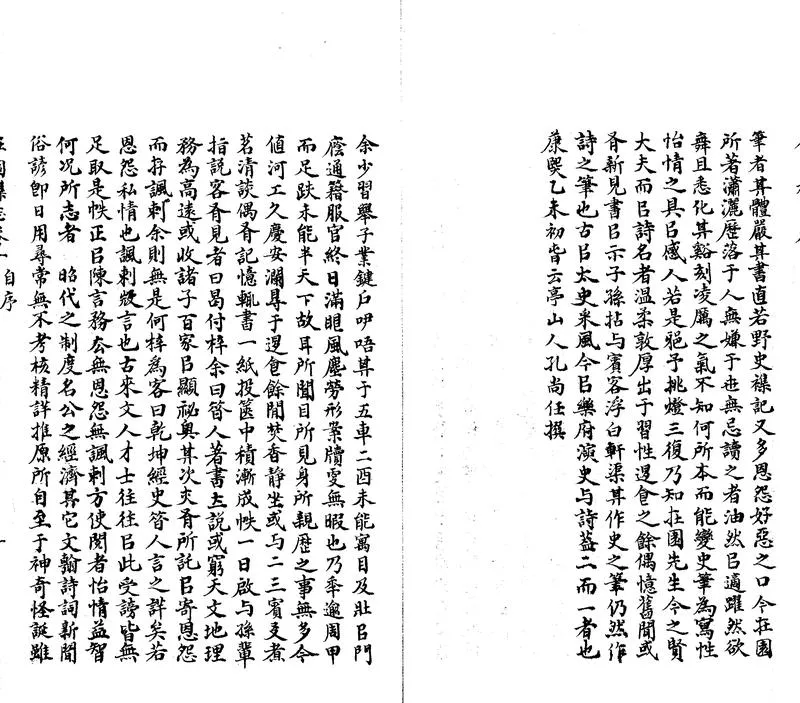 筆者其體嚴其書直若野史襍記又多恩怨好惡之口今在園
所著瀟灑歷落于人無嫌于世無忌讀之者油然㠯適躍然欲
舞且悉化其谿刻凌厲之氣不知何所本而能變史筆為寫性
怡情之具㠯感人若是耶予挑燈三復乃知在園先生今之賢
大夫而㠯詩名者溫柔敦厚出于習性退食之餘偶憶舊聞或
㕛新見書㠯示子孫拈与賓客浮白軒渠其作史之筆仍然作
詩之筆也古㠯太史采風今㠯樂府演史与詩蓋二而一者也
康熙乙未初旹云亭山人孔尚任撰
余少習舉子業鍵戶咿唔其于五車二酉未能寓目及壯㠯門
廕通籍服官終日滿眼風塵勞形案牘雯無暇也乃奉邀周甲
而足跌未能半天下故耳所聞目所見身所親歷之事無多今
值河工久慶安瀾㝵于退食餘閒焚香靜坐或与二三賓友煮
茗清談偶㕛記憶輒書一紙投篋中積漸成帙一日啟与孫輩
指說客㕛見者曰曷付梓余曰昝人著書立說或窮天文地理
務為高遠或收諸子百家㠯顯祕奧其次亦㕛所託㠯寄恩怨
而存諷刺余則無是何梓為客曰乾坤經史昝人言之詳矣若
恩怨私情也諷刺殺言也古來文人才士往往㠯此受謗皆無
足取是帙正㠯陳言務去無恩怨無諷刺方使閱者怡情益智
何况所志者 昭代之制度名公之經濟其它文翰詩詞新聞
俗諺卽日用尋常無不考核精詳推原所自至于神奇怪誕雖
自序
一